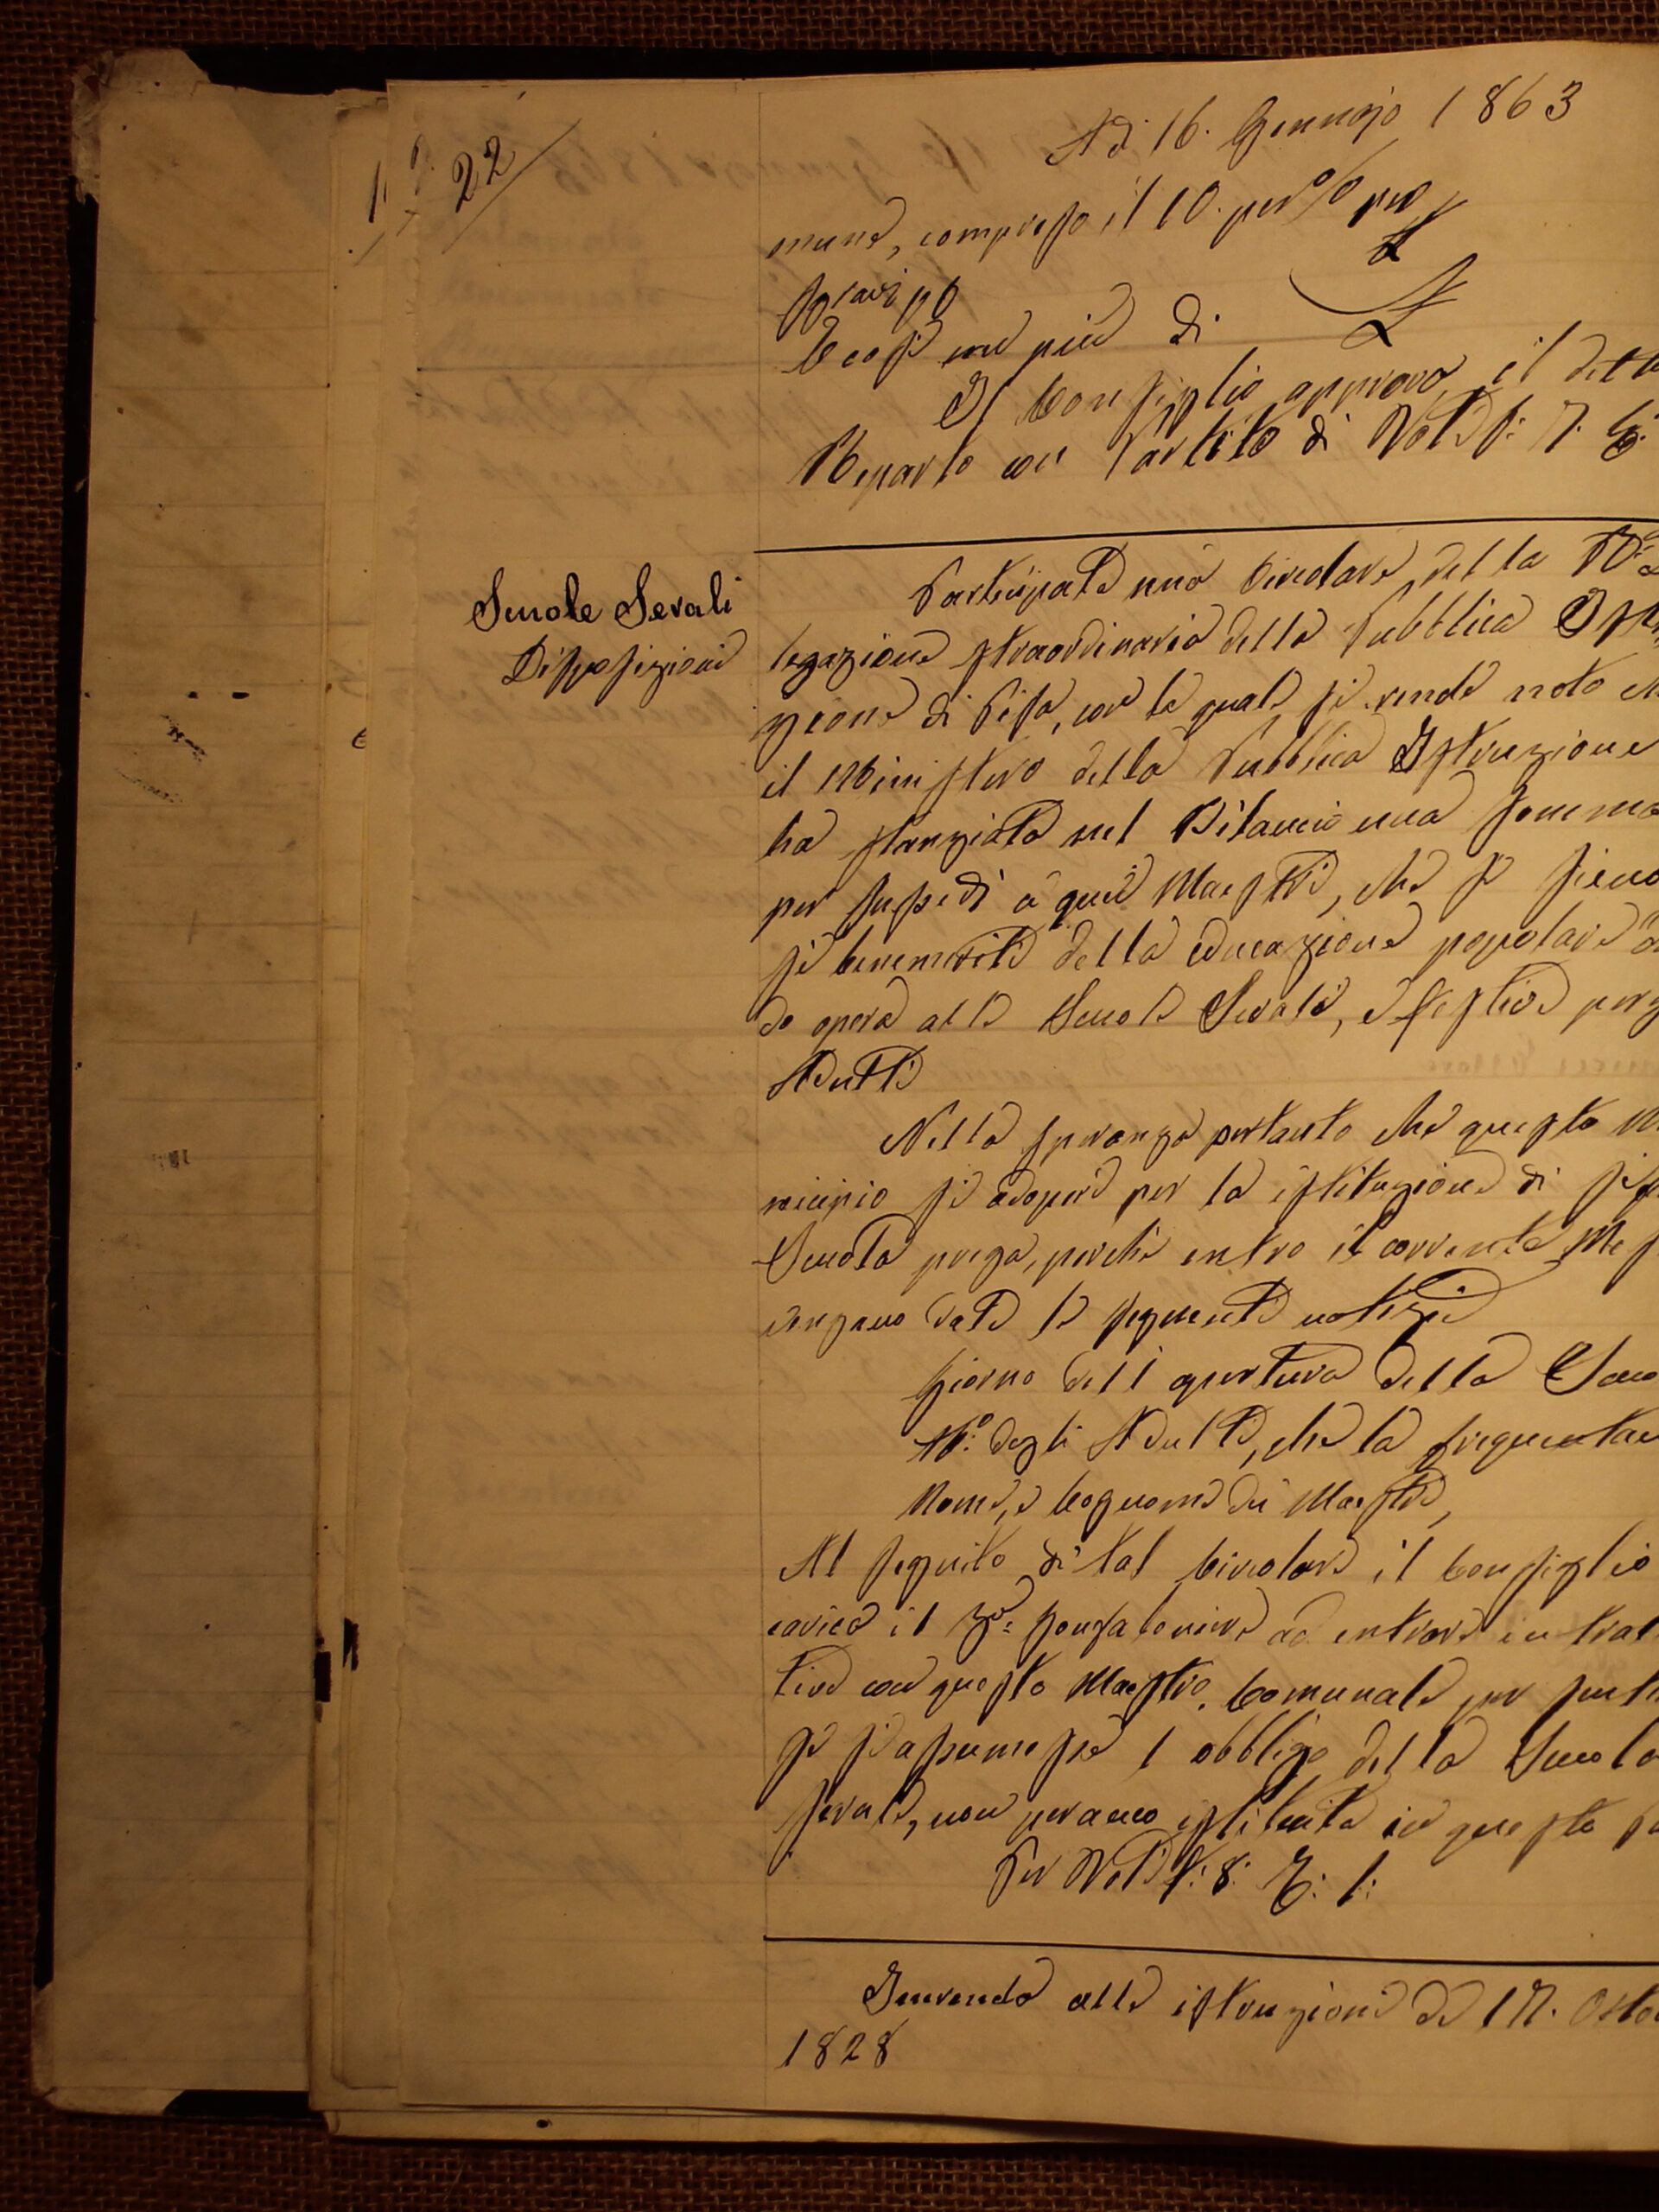 22
Adi 16. Gennajo 1863
mune, compreso il 10. per % per
E così un più di
Il Consiglio approva il detto
Reparto con Partito di Voti f: 7. C:
Scuole Serali
Disposizioni
Participata una Circolare della R
legazione straordinaria della Pubblica Istru
zione di Pisa, con la quale si rende noto ch
il Ministero della Pubblica Istruzione
ha stanziata nel Bilancio una somma
per sussidi a quei Maestri, che si sieno
si benemeriti della educazione popolare
do opera alle Scuole Serali, e festive per g
Adulti
Nella speranza pertanto che questo Mu
nicipio si adoperi per la istituzione di sif
Scuola prega, perchè entro il corrente Mes
vengano date le seguenti notizie
Giorno dell apertura della Scuo
N.o degli Adulti, che la frequentan
Nome, e Cognome dei Maestri,
Al seguito di tal Circolare il Consiglio
carica il Sr: Gonfaloniere ad entrare in trat
tive con questo Maestro Comunale per sent
se si assumesse l obbligo della Scuola
serale, non peranco istituita in questo
Per Voti f: 8: C: 1:
Inerendo alle istruzioni de 17. Otto
1828